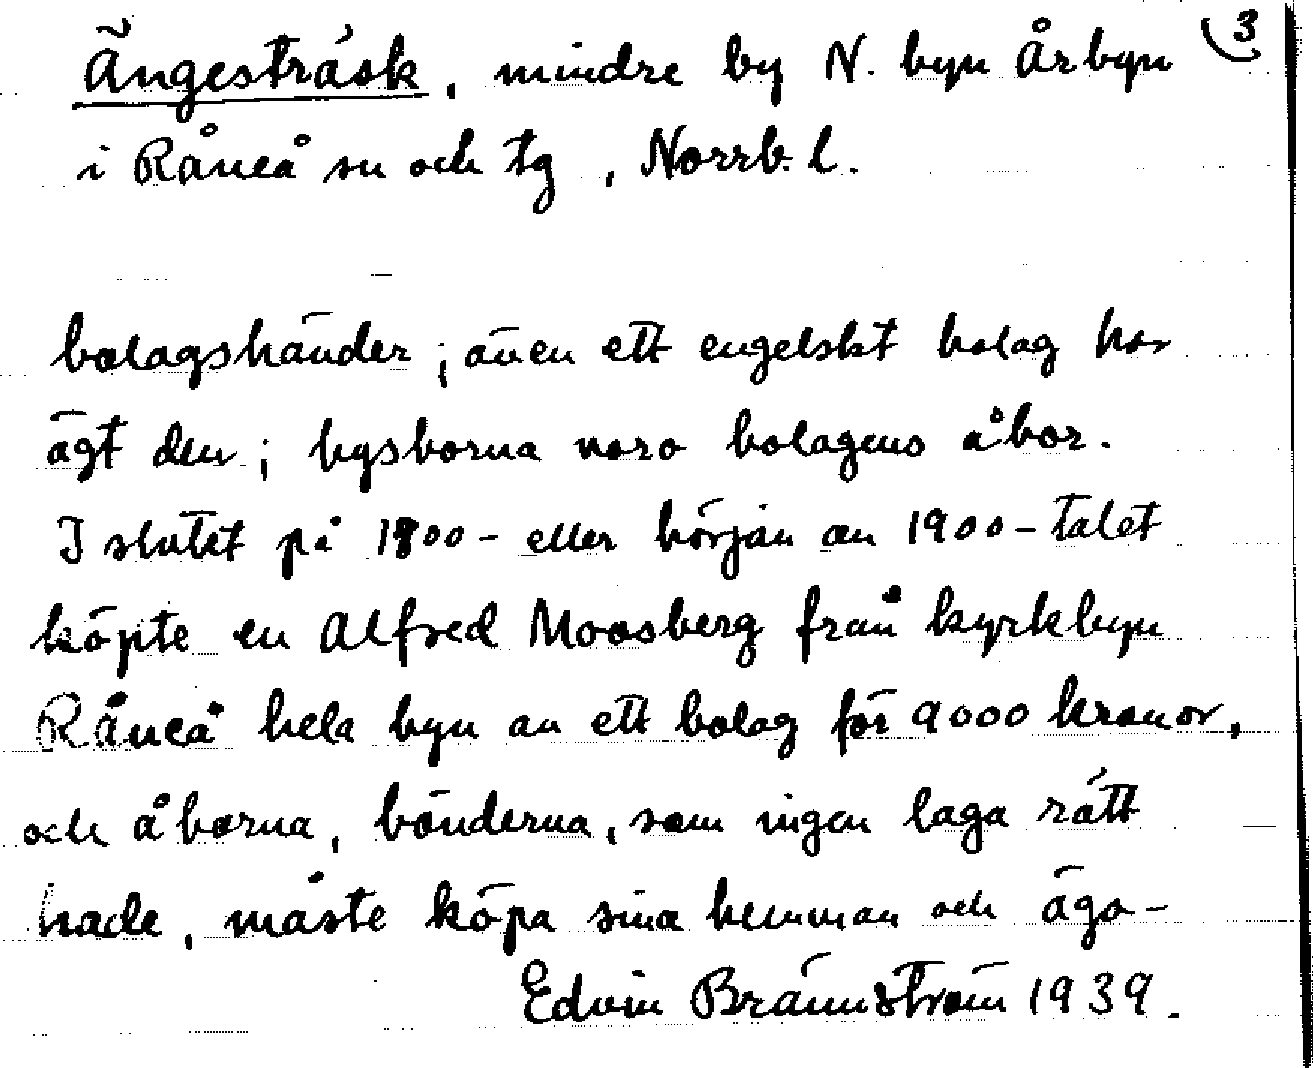 3
Ängesträsk, mindre by N. byn Årbyn
i Råneå sn och tg, Norrb. l.
bolagshänder; även ett engelskt bolag har
ägt den; bysborna voro bolagens åbor.
I slutet på 1800- eller början av 1900-talet
köpte en Alfred Moosberg från kyrkbyn
Råneå hela byn av ett bolag för 9000 kronor,
och åborna, bönderna, som ingen laga rätt
hade, måste köpa sina hemman och ägo-
Edvin Brännström 1939.